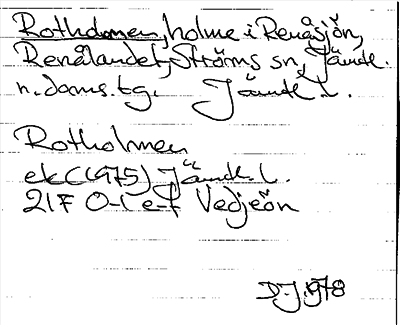 Rotholmen, holme i Renåsjön,
Renålandet, Ströms sn, Jämtl.
n. doms. tg. Jämtl. l.
Rotholmen
ek C (1975) Jämtl. l.
21F 0-1 e-f Vedjeön
DJ 1978